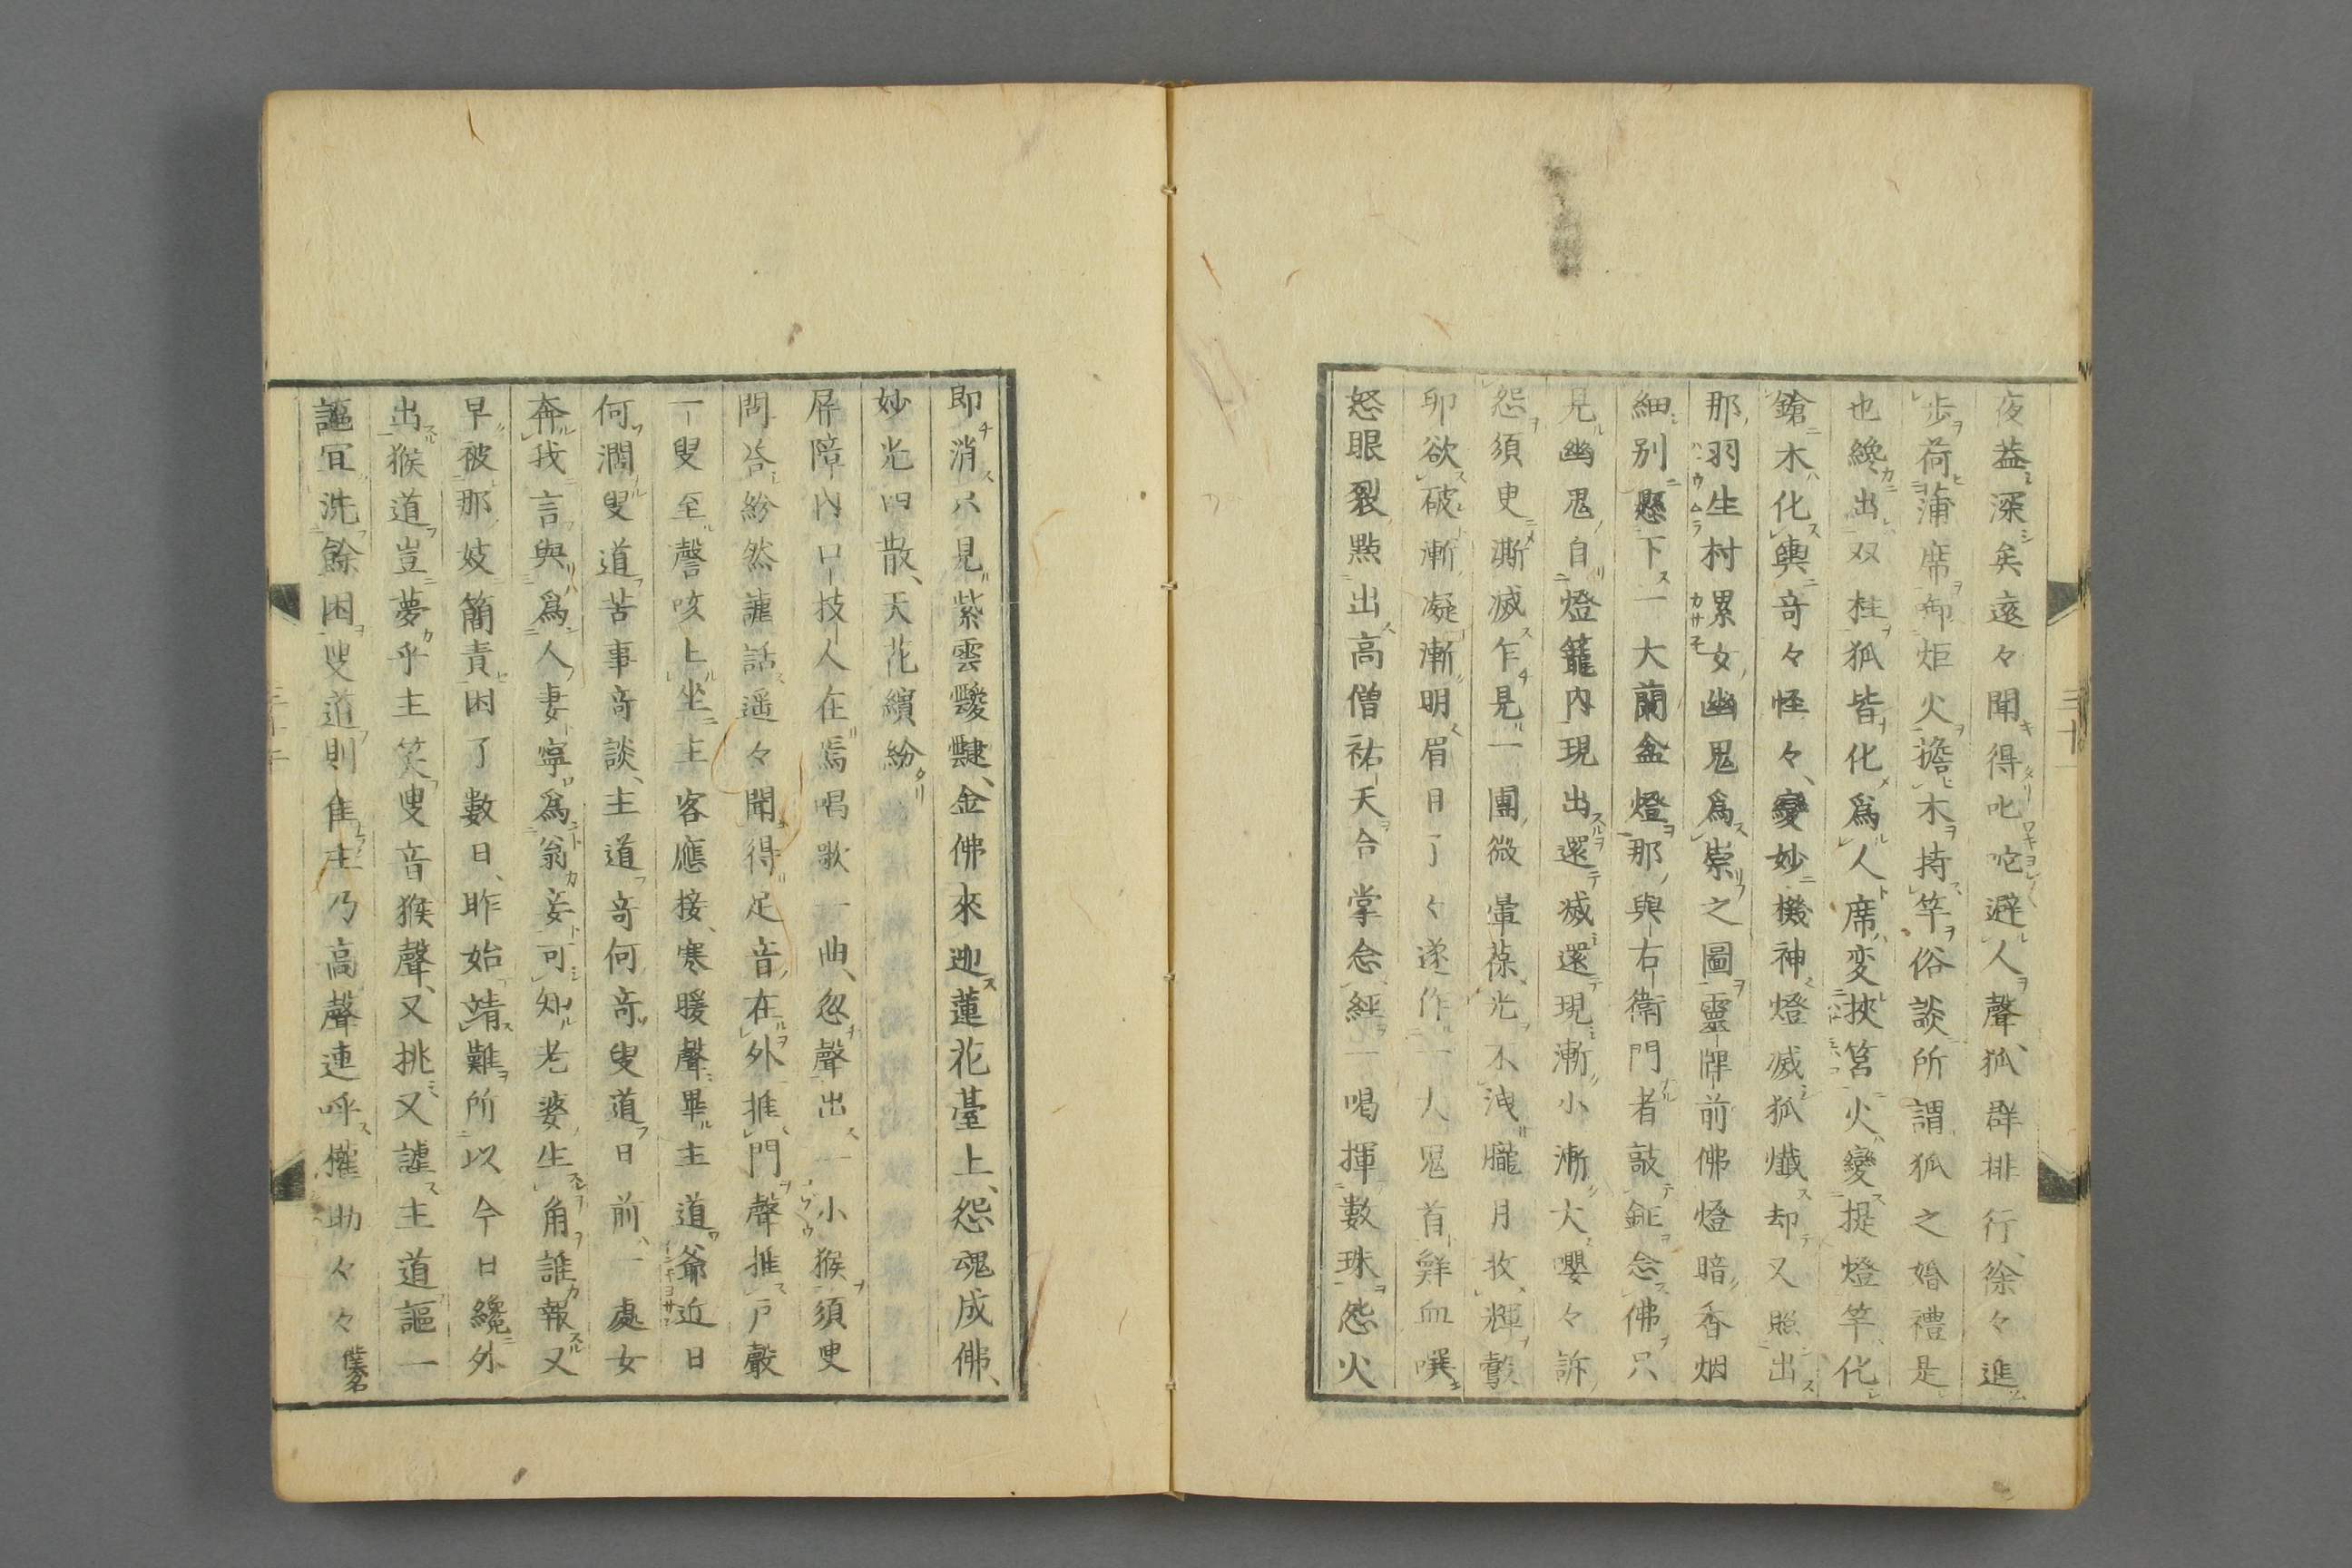 夜益深矣遠々聞得叱咜避人聲、狐群排行、徐々進
歩荷蒲席卸炬火擔木持竿俗談所謂狐之婚禮是
也纔出双柱狐皆化爲人席変挾筥火變提燈竿化
鎗木化輿竒々怪々、變妙機神燈滅狐懺却又照出
那羽生村累女幽鬼爲祟之圖靈牌前佛燈暗香烟
細别懸下一大蘭盆燈那與右衛門者敲鉦念佛只
見幽鬼自燈籠内現出還滅還現漸小漸大嚶々訴
怨須臾澌滅乍見一團微暈葆光不洩朧月收輝鷇
卵欲破漸凝漸明眉目了々遂作一大鬼首鮮血噀
怒眼裂點出高僧祐天合掌念經一喝揮數珠怨火
即消只見紫雲靉靆、金佛來迎蓮花臺上、怨魂成佛、
妙光四散、天花繽紛
屏障内口技人在焉唱歌一曲、忽聲出一小猴須臾
問答紛然謔話遥々聞得足音在外推門聲推戸聲
一叟至謦咳上坐主客應接、寒暖聲畢主道爺近日
何濶叟道苦事竒談、主道竒何竒叟道日前一處女
奔我言與爲人妻寧爲翁妾可知老婆生角誰報又
早被那妓簡責困了數日、昨始靖難所以今日纔外
出猴道豈夢乎主笑叟音猴聲、又挑又謔主道謳一
謳冝洗餘困叟道則隹主乃高聲連呼催助々々僕名